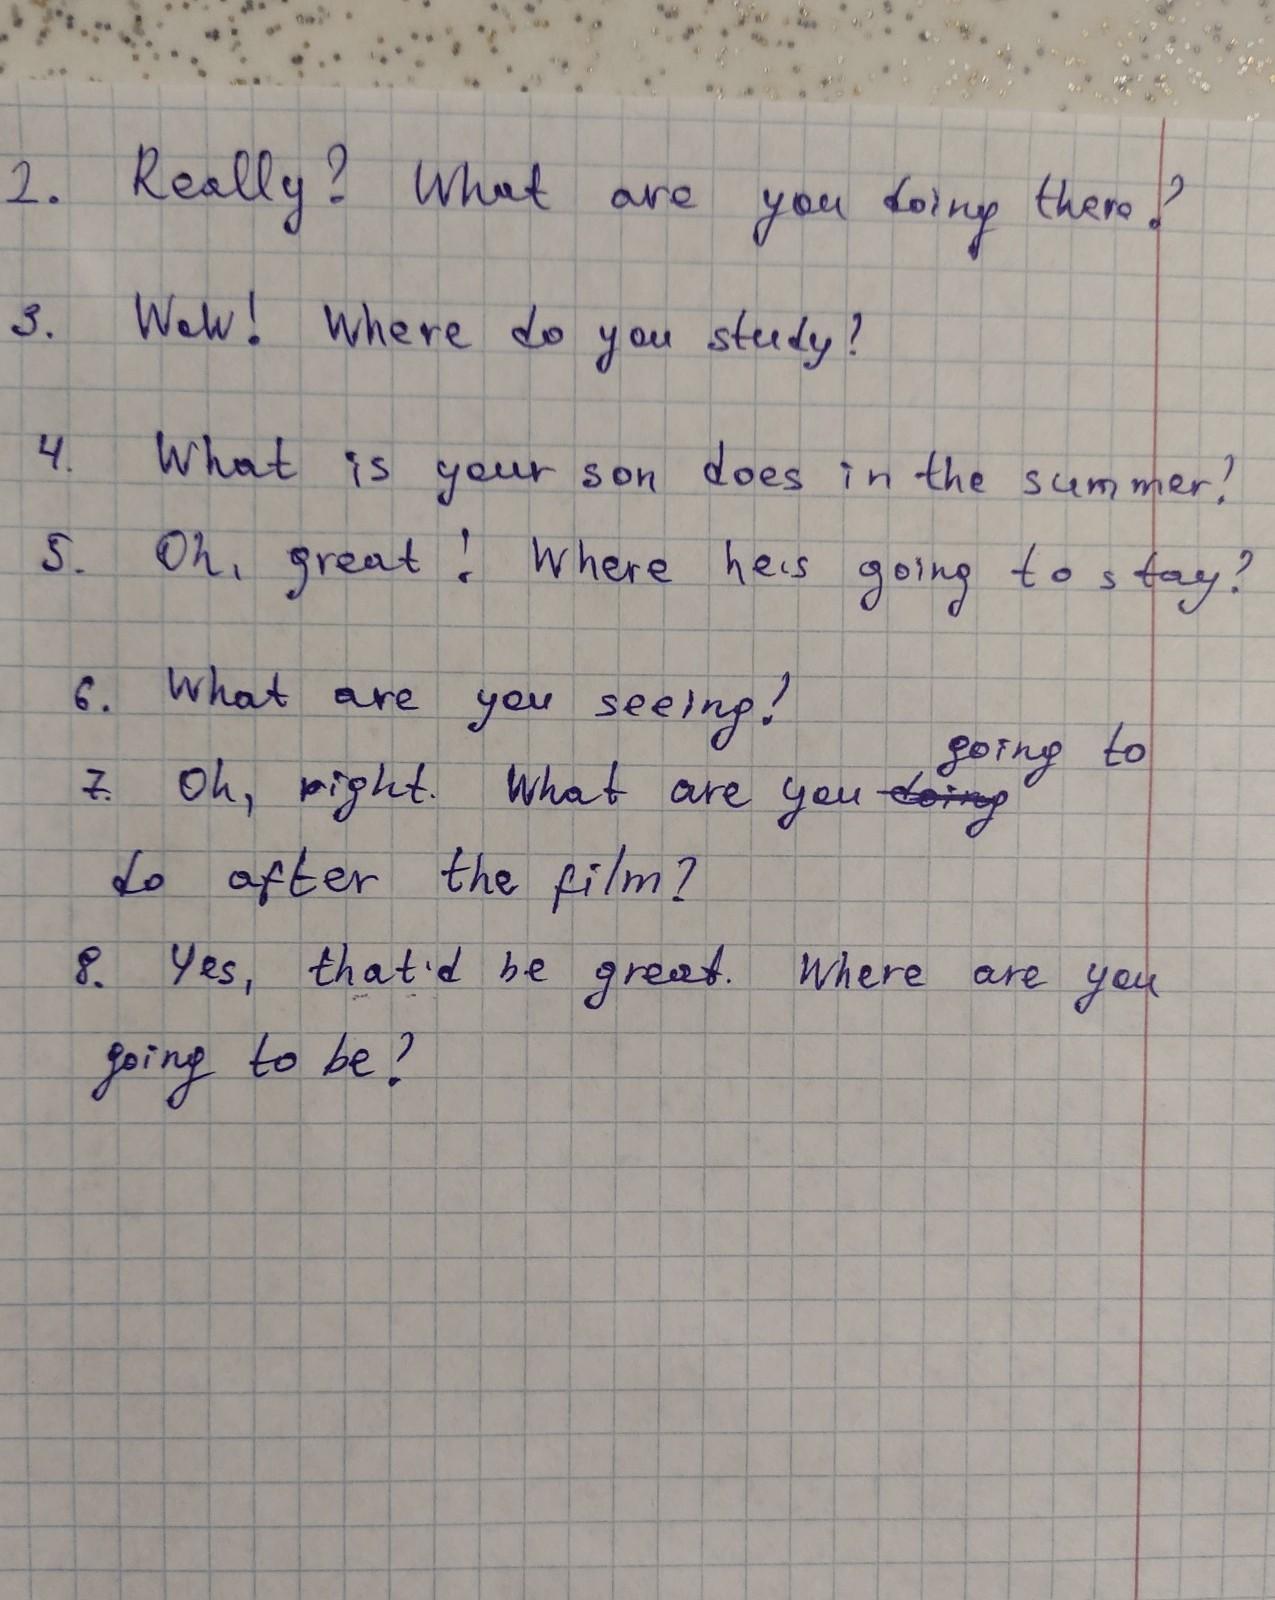 2. Really? What are you doing there?
3. Wow! Where do you study?
4. What is your son does in the summer?
5. Oh, great! Where he is going to stay?
6. What are you seeing?
going to
7. Oh, right. What are you doing
do after the film?
8. Yes, that'd be great. Where are you
going to be?